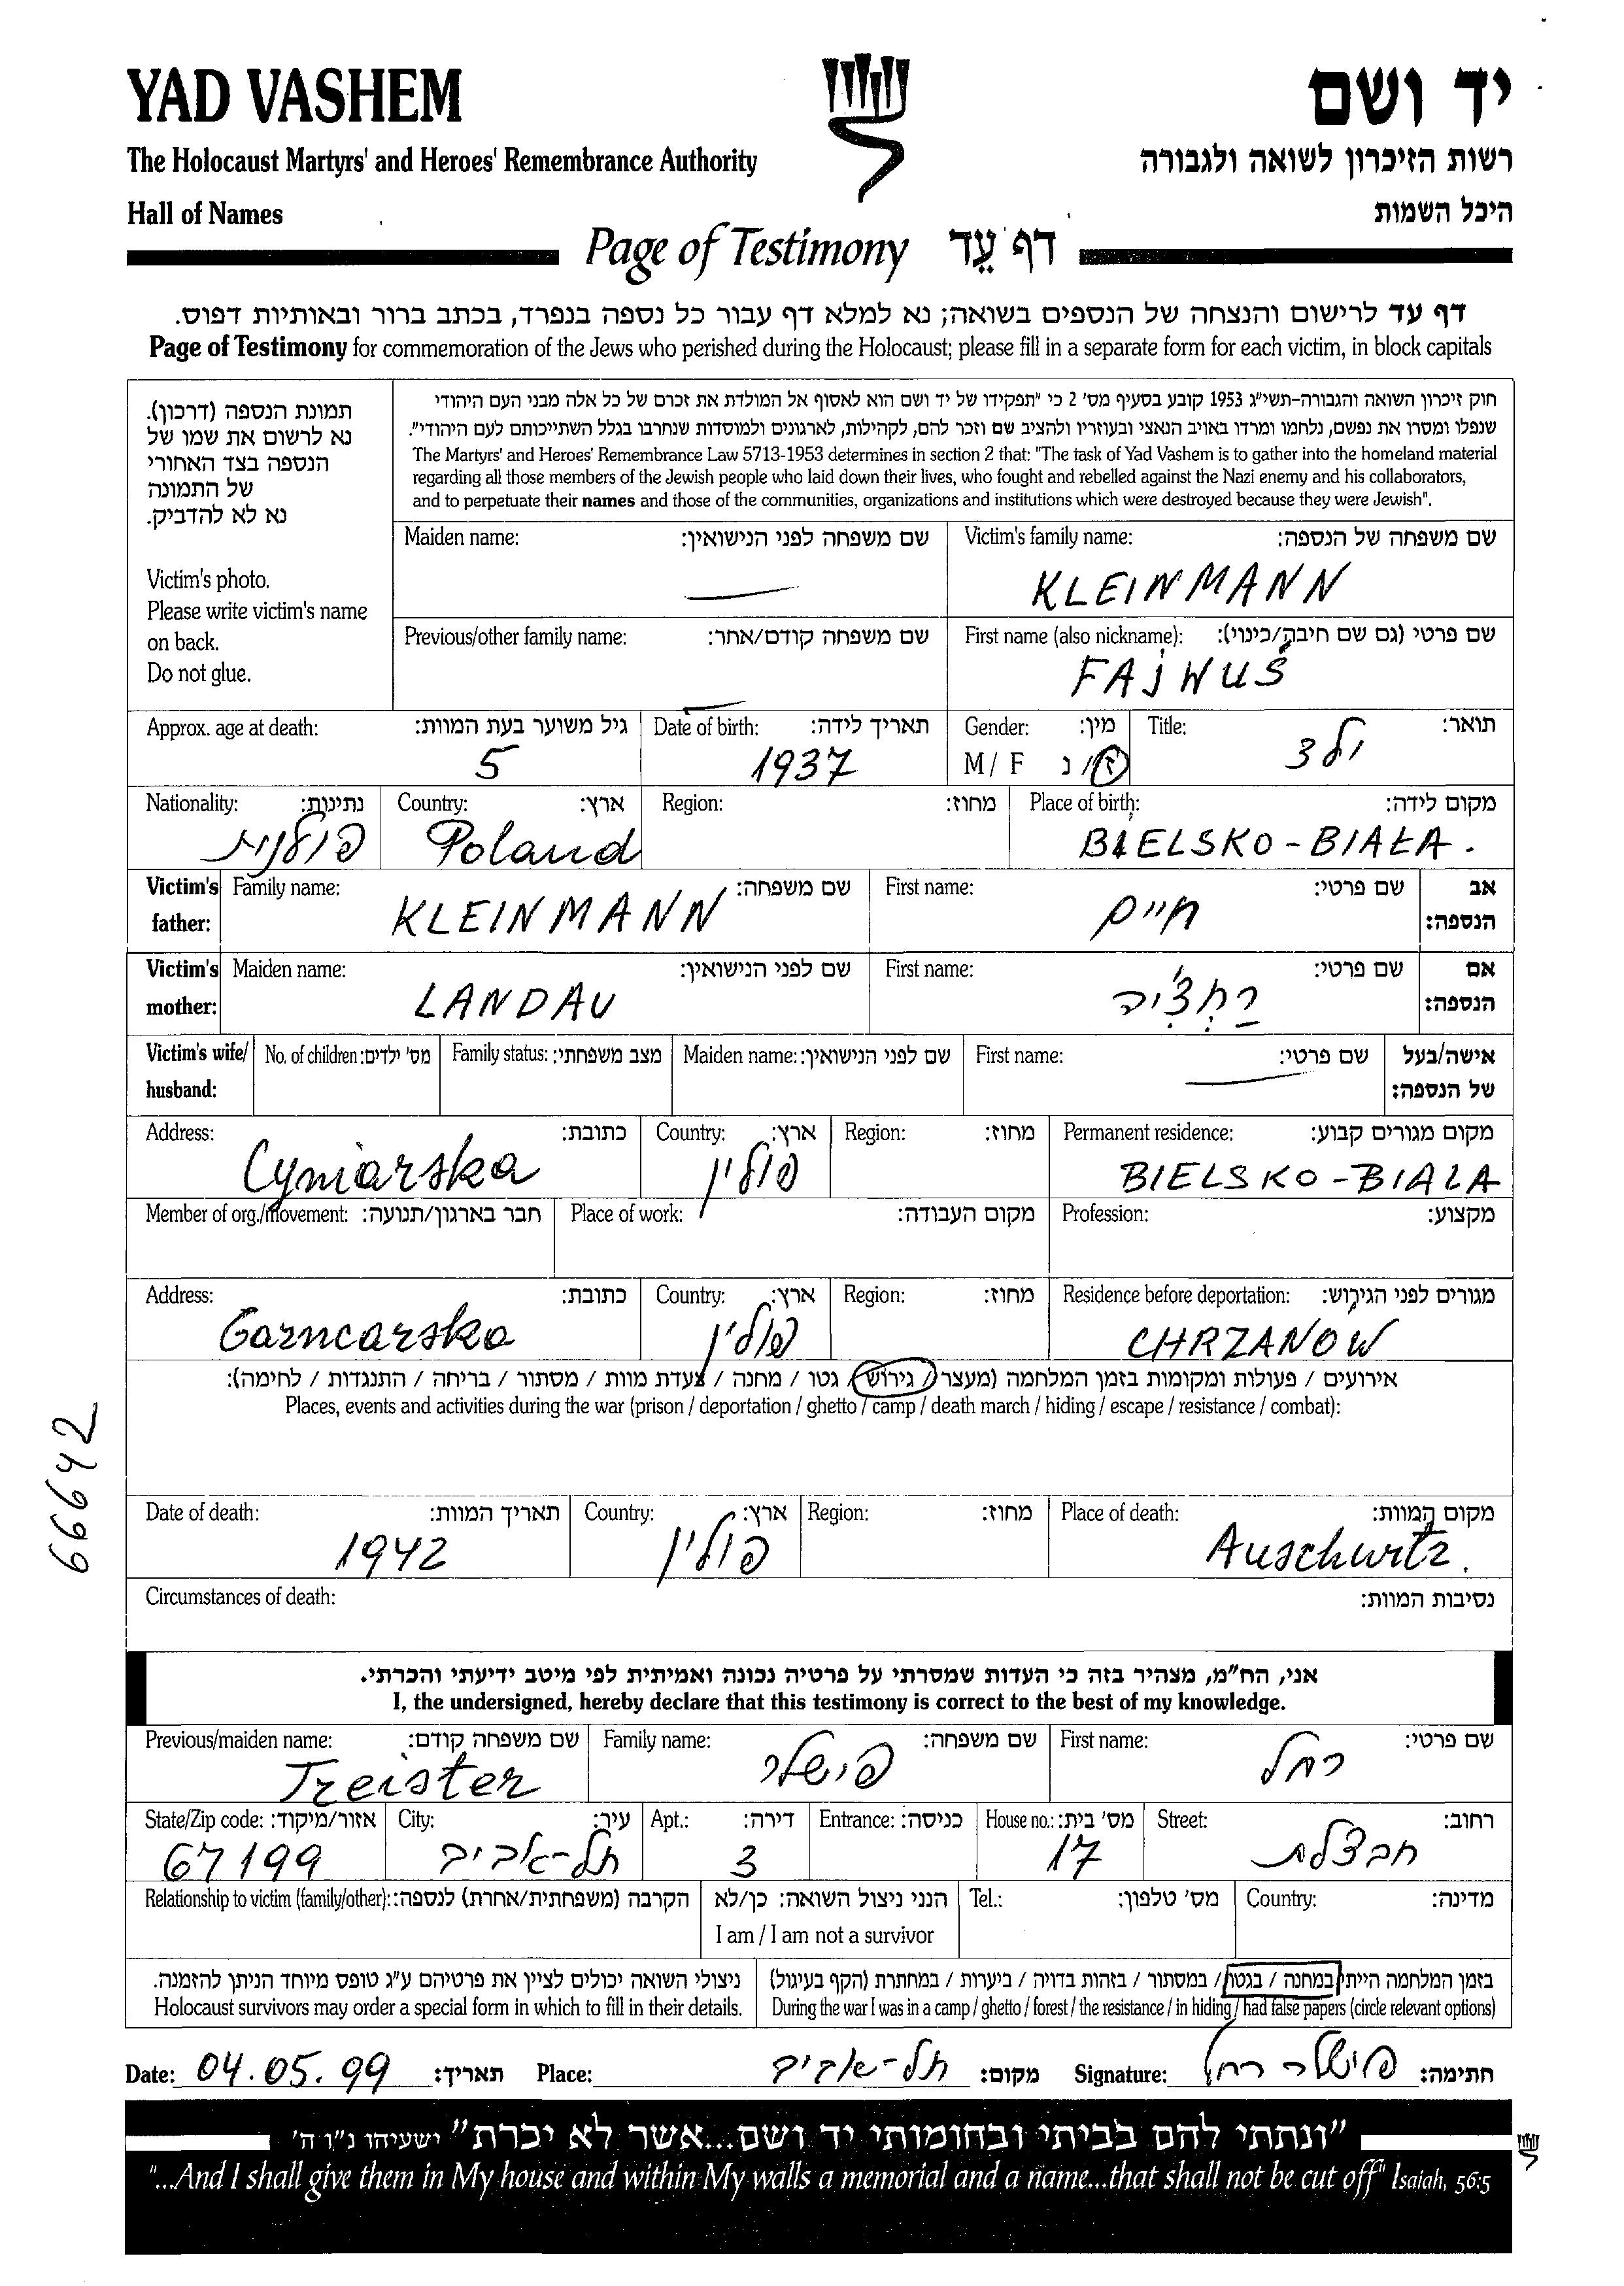 YAD VASHEM
יד ושם
The Holocaust Martyrs' and Heroes' Remembrance Authority
רשות הזיכרון לשואה ולגבורה
Hall of Names
היכל השמות
Page of Testimony דף עֵד
דף עד לרישום והנצחה של הנספים בשואה; נא למלא דף עבור כל נספה בנפרד, בכתב ברור ובאותיות דפוס.
Page of Testimony for commemoration of the Jews who perished during the Holocaust; please fill in a separate form for each victim, in block capitals
תמונת הנספה (דרכון).
נא לרשום את שמו של
הנספה בצד האחורי
של התמונה
נא לא להדביק.
Victim's photo.
Please write victim's name
on back.
Do not glue.
חוק זיכרון השואה והגבורה-תשי"ג 1953 קובע בסעיף מס' 2 כי "תפקידו של יד ושם הוא לאסוף אל המולדת את זכרם של כל אלה מבני העם היהודי
שנפלו ומסרו את נפשם, נלחמו ומרדו באויב הנאצי ובעוזריו ולהציב שם וזכר להם, לקהילות, לארגונים ולמוסדות שנחרבו בגלל השתייכותם לעם היהודי".
The Martyrs' and Heroes' Remembrance Law 5713-1953 determines in section 2 that: "The task of Yad Vashem is to gather into the homeland material
regarding all those members of the Jewish people who laid down their lives, who fought and rebelled against the Nazi enemy and his collaborators,
and to perpetuate their names and those of the communities, organizations and institutions which were destroyed because they were Jewish".
Maiden name: שם משפחה לפני הנישואין: Victim's family name: שם משפחה של הנספה:
KLEINMANN
Previous/other family name: שם משפחה קודם/אחר: First name (also nickname): שם פרטי (גם שם חיבה/כינוי):
FAJWUŚ
Approx. age at death: גיל משוער בעת המוות: Date of birth: תאריך לידה: Gender: מין: Title: תואר:
5 1937 M / F ז/נ ילד
Nationality: נתינות: Country: ארץ: Region: מחוז: Place of birth: מקום לידה:
פולנית Poland BIELSKO-BIAŁA.
Victim's father: Family name: שם משפחה: First name: שם פרטי: אב הנספה:
KLEINMANN חיים
Victim's mother: Maiden name: שם לפני הנישואין: First name: שם פרטי: אם הנספה:
LANDAU
Victim's wife/ husband: No. of children: מס' ילדים: Family status: מצב משפחתי: Maiden name: שם לפני הנישואין: First name: שם פרטי: אישה/בעל של הנספה:
Address: כתובת: Country: ארץ: Region: מחוז: Permanent residence: מקום מגורים קבוע:
Cyniarska פולין BIELSKO-BIAŁA
Member of org./movement: חבר בארגון/תנועה: Place of work: מקום העבודה: Profession: מקצוע:
Address: כתובת: Country: ארץ: Region: מחוז: Residence before deportation: מגורים לפני הגירוש:
Garncarska פולין CHRZANOW
אירועים / פעולות ומקומות בזמן המלחמה (מעצר / גירוש / גטו / מחנה / צעדת מוות / מסתור / בריחה / התנגדות / לחימה):
Places, events and activities during the war (prison / deportation / ghetto / camp / death march / hiding / escape / resistance / combat):
66642
Date of death: תאריך המוות: Country: ארץ: Region: מחוז: Place of death: מקום המוות:
1942 פולין Auschwitz.
Circumstances of death: נסיבות המוות:
אני, הח"מ, מצהיר בזה כי העדות שמסרתי על פרטיה נכונה ואמיתית לפי מיטב ידיעתי והכרתי.
I, the undersigned, hereby declare that this testimony is correct to the best of my knowledge.
Previous/maiden name: שם משפחה קודם: Family name: שם משפחה: First name: שם פרטי:
Treister פישלר רחל
State/Zip code: אזור/מיקוד: City: עיר: Apt.: דירה: Entrance: כניסה: House no.: מס' בית: Street: רחוב:
67199 תל-אביב 3 17 חבצלת
Relationship to victim (family/other): הקרבה (משפחתית/אחרת) לנספה: הנני ניצול השואה: כן/לא Tel.: מס' טלפון: Country: מדינה:
I am / I am not a survivor
ניצולי השואה יכולים לציין את פרטיהם ע"ג טופס מיוחד הניתן להזמנה.
Holocaust survivors may order a special form in which to fill in their details.
בזמן המלחמה הייתי במחנה / בגטו / במסתור / בזהות בדויה / ביערות / במחתרת (הקף בעיגול)
During the war I was in a camp / ghetto / forest / the resistance / in hiding / had false papers (circle relevant options)
Date: 04.05.99 תאריך: Place: תל-אביב מקום: Signature: פישלר רחל חתימה:
"ונתתי להם בביתי ובחומותי יד ושם...אשר לא יכרת" ישעיהו נ"ו ה'
"...And I shall give them in My house and within My walls a memorial and a name...that shall not be cut off" Isaiah, 56:5